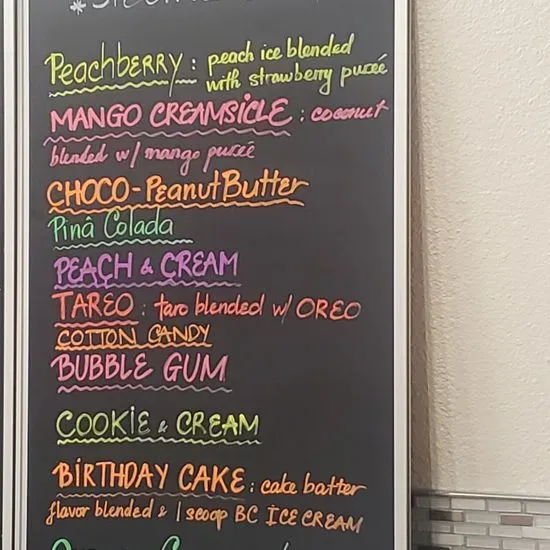 PeachbeRRY : peach ice blended
with strawberry pureé
MANGO CREAMSICLE : coconut
blended w/ mango pureé
CHOCO-PeanutButter
Pinâ Colada
PEACH & CREAM
TAREO : taro blended w/ OREO
COTTON CANDY
BUBBLE GUM
COOKIE & CREAM
BIRTHDAY CAKE : cake batter
flavor blended & 1 scoop BC ICE CREAM